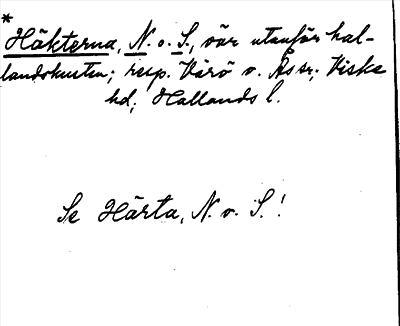 *
Häkterna, N. o. S., öar utanför hal-
landskusten; resp. Värö o. Ås sr; Viske
hd, Hallands l.
Se Härta, N. o. S.!